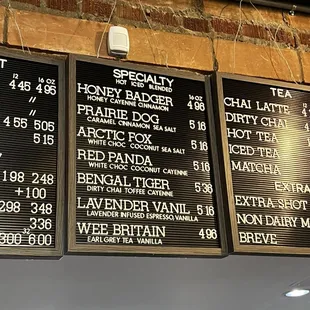 T
12 16 OZ
4 45 4 96
"
"
4 55 5 05
5 15
1 98 2 48
+100
2 98 3 48
3 36
3 00 6 00
HOT ICED
SPECIALTY
BLENDED
16 OZ
HONEY BADGER 4 96
HONEY CAYENNE CINNAMON
PRAIRIE DOG 5 16
CARAMEL CINNAMON SEA SALT
ARCTIC FOX 5 16
WHITE CHOC COCONUT SEA SALT
RED PANDA 5 16
WHITE CHOC COCONUT CAYENNE
BENGAL TIGER 5 36
DIRTY CHAI TOFFEE CAYENNE
LAVENDER VANIL 5 16
LAVENDER INFUSED ESPRESSO, VANILLA
WEE BRITAIN 4 96
EARL GREY TEA VANILLA
TEA
12
CHAI LATTE
DIRTY CHAI
HOT TEA
ICED TEA
MATCHA
EXTRA
EXTRA-SHOT
NON DAIRY M
BREVE